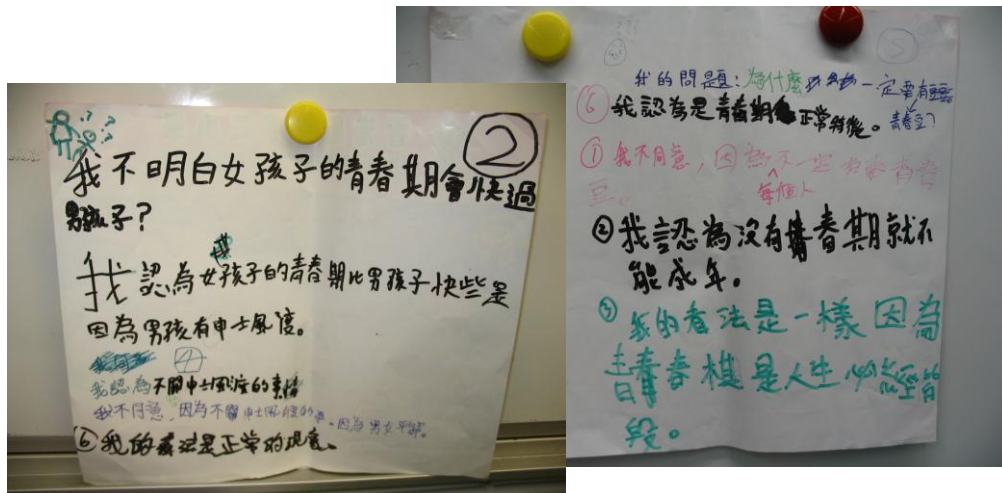 ②
我不明白女孩子的青春期會快過
男孩子?
我認為女孩子的青春期比男孩子快些是
因為男孩有申士風度。
④
我認為不關申士風度的事情
我不同意,因為不關申士風度的事。因為男女平等。
⑥我的看法是正常的現意。
5
我的問題:為什麼 一定要有
青春豆?
⑥我認為是青春期 正常特徵。
①我不同意,因為不一定 有青春
每個人
豆。
②我認為沒有青春期就不
能成年。
③我的看法是一樣因為
青春棋是人生必經的
段。